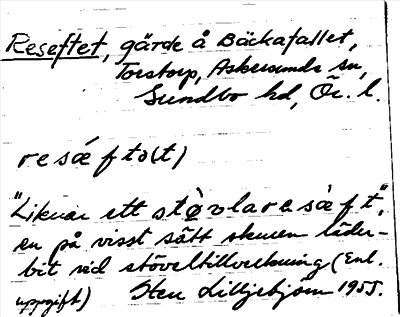 Reseftet, gärde å Bäckafallet,
Torstorp, Askersunds sn,
Sundbo hd, Ör. l.
resæ̀ftə(t)
"Liknar ett stø̀vlaresæ̀ft",
en på visst sätt skuren läder-
bit vid stöveltillverkning (Enl.
uppgift) Sten Lilljebjörn 1955.